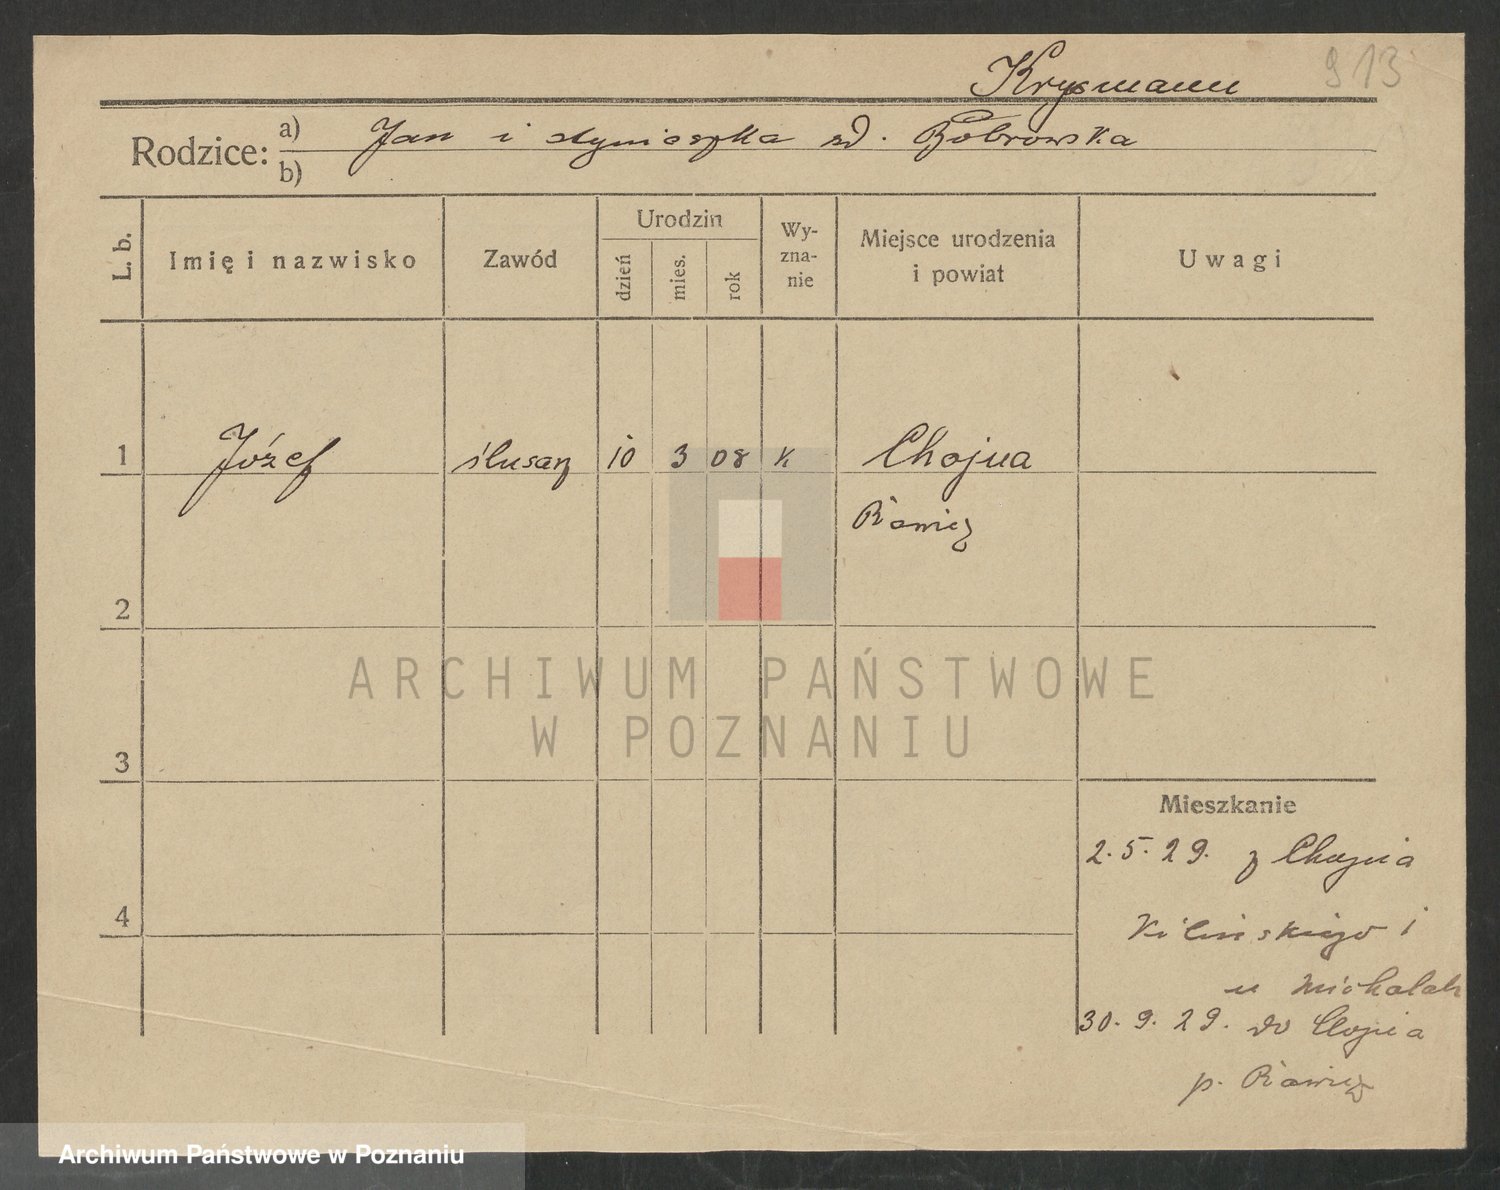 913
Krysmann
Rodzice: a) Jan i Agnieszka zd. Bobrowska
b)
L. b. Imię i nazwisko Zawód Urodzin dzień mies. rok Wy-zna-nie Miejsce urodzenia i powiat Uwagi
1 Józef ślusarz 10 3 08 K Chojna
Rawicz
2
ARCHIWUM PAŃSTWOWE
W POZNANIU
3
Mieszkanie
2.5.29. z Chojna
4
Kilińskiego 1
u Michalak
30.9.29. do Chojna
p. Rawicz
Archiwum Państwowe w Poznaniu